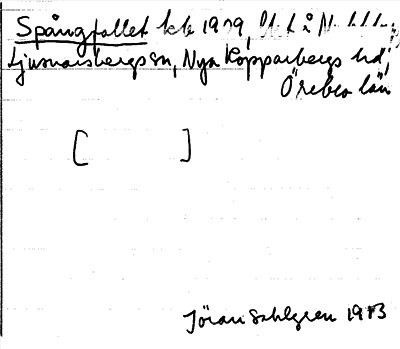 Spångfallet
Ljusnarsbergs sn, Nya Kopparbergs hd,
Örebro län
[ ]
Jöran Sahlgren 1913